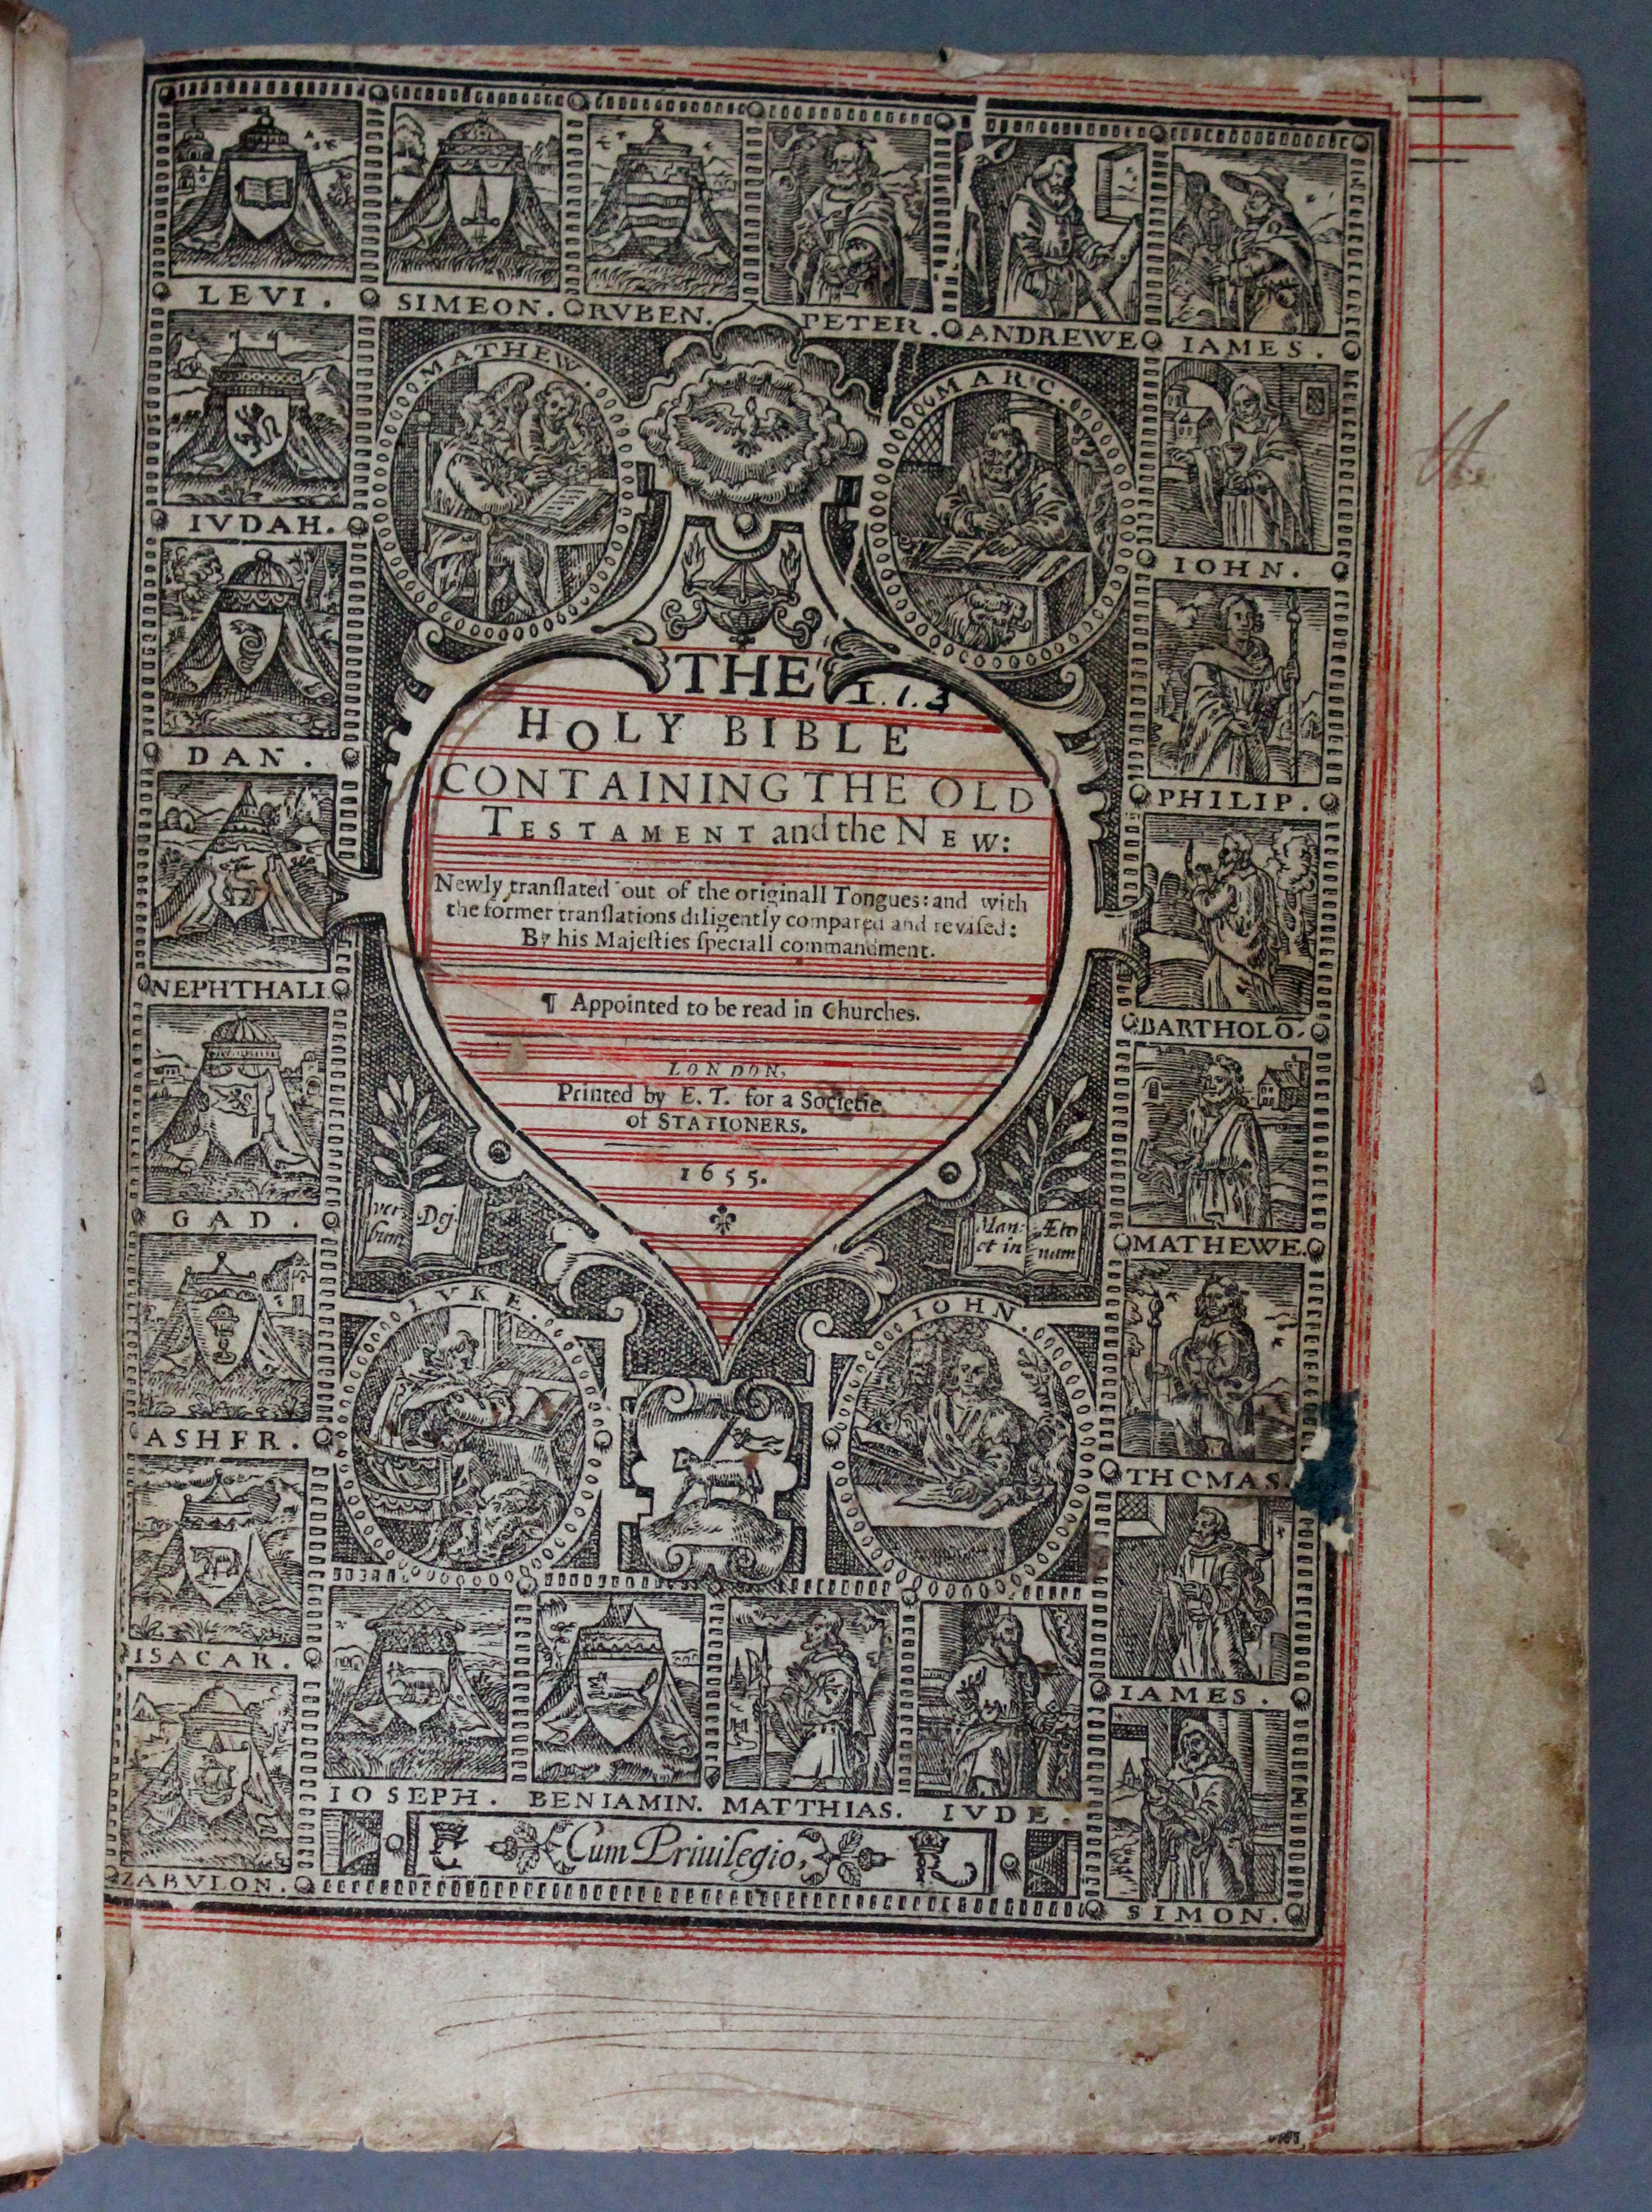 LEVI.
SIMEON.
RVBEN.
PETER.
ANDREWE
IAMES.
MATHEW.
MARC.
IVDAH.
IOHN.
DAN.
PHILIP.
NEPHTHALI
BARTHOLO
GAD.
MATHEWE.
ASHER.
THOMAS.
ISACAR.
IAMES.
ZABVLON.
SIMON.
THE
1.1.3
HOLY BIBLE
CONTAINING THE OLD
TESTAMENT and the NEW:
Newly tranſlated out of the originall Tongues: and with
the former tranſlations diligently compared and reviſed:
By his Majeſties ſpeciall commandment.
¶ Appointed to be read in Churches.
LONDON,
Printed by E. T. for a Societie
of STATIONERS.
1655.
ver
bum
Dej.
Man:
et in
Æter
num
LVKE.
IOHN.
IOSEPH.
BENIAMIN.
MATTHIAS.
IVDE.
E Cum Priuilegio, R